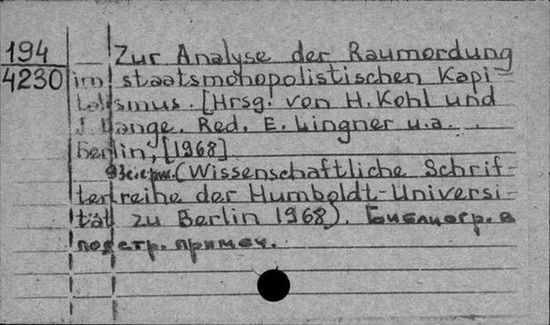 194
4230
Zur Analyse der Raumordung
im staatsmonopolistischen Kapi-
talismus. [Hrsg. von H. Kohl und
J. Lange. Red. E. Lingner u.a.
Berlin, [1968]
(Wissenschaftliche Schrif-
tenreihe der Humboldt-Universi-
tät zu Berlin 1968). Библиогр. в
подстр. примеч.